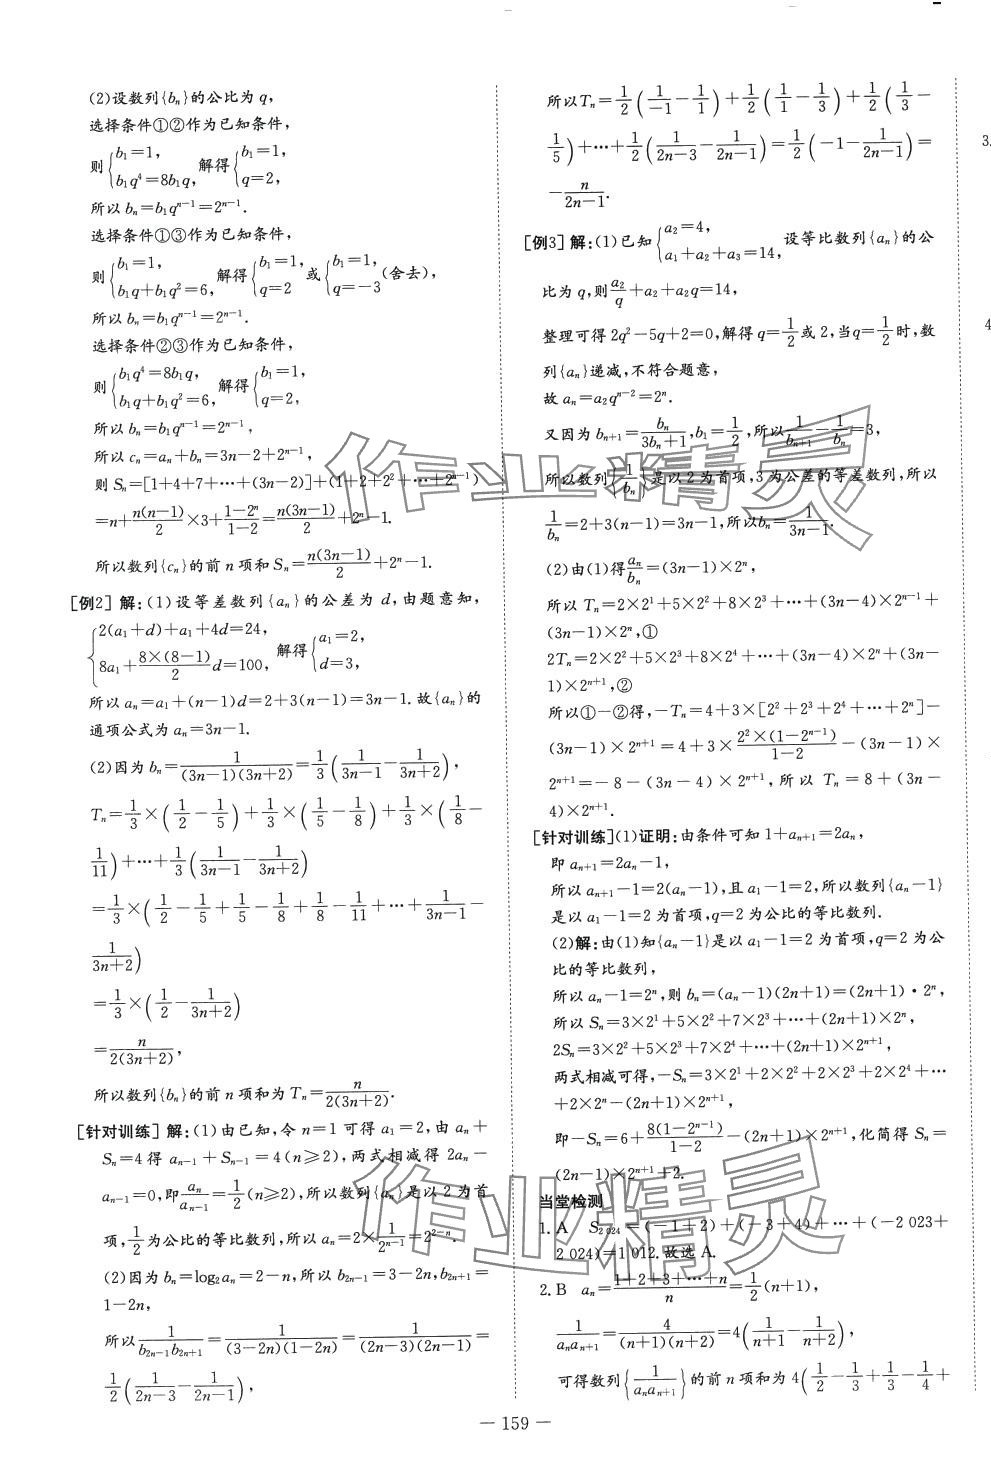 (2)设数列{bₙ}的公比为 q,
选择条件①②作为已知条件,
则{b₁=1, b₁q⁴=8b₁q, 解得{b₁=1, q=2,
所以 bₙ=b₁qⁿ⁻¹=2ⁿ⁻¹.
选择条件①③作为已知条件,
则{b₁=1, b₁q+b₁q²=6, 解得{b₁=1, q=2 或{b₁=1, q=-3 (舍去),
所以 bₙ=b₁qⁿ⁻¹=2ⁿ⁻¹.
选择条件②③作为已知条件,
则{b₁q⁴=8b₁q, b₁q+b₁q²=6, 解得{b₁=1, q=2,
所以 bₙ=b₁qⁿ⁻¹=2ⁿ⁻¹,
所以 cₙ=aₙ+bₙ=3n-2+2ⁿ⁻¹,
则 Sₙ=[1+4+7+…+(3n-2)]+(1+2+2²+…+2ⁿ⁻¹)
=n+n(n-1)/2×3+(1-2ⁿ)/(1-2)=n(3n-1)/2+2ⁿ-1.
所以数列{cₙ}的前 n 项和 Sₙ=n(3n-1)/2+2ⁿ-1.
[例2] 解:(1)设等差数列{aₙ}的公差为 d,由题意知,
{2(a₁+d)+a₁+4d=24, 8a₁+8×(8-1)/2 d=100, 解得{a₁=2, d=3,
所以 aₙ=a₁+(n-1)d=2+3(n-1)=3n-1.故{aₙ}的
通项公式为 aₙ=3n-1.
(2)因为 bₙ=1/((3n-1)(3n+2))=1/3(1/(3n-1)-1/(3n+2)),
Tₙ=1/3×(1/2-1/5)+1/3×(1/5-1/8)+1/3×(1/8-
1/11)+…+1/3(1/(3n-1)-1/(3n+2))
=1/3×(1/2-1/5+1/5-1/8+1/8-1/11+…+1/(3n-1)-
1/(3n+2))
=1/3×(1/2-1/(3n+2))
=n/(2(3n+2)),
所以数列{bₙ}的前 n 项和为 Tₙ=n/(2(3n+2)).
[针对训练] 解:(1)由已知,令 n=1 可得 a₁=2,由 aₙ+
Sₙ=4 得 aₙ₋₁+Sₙ₋₁=4(n≥2),两式相减得 2aₙ-
aₙ₋₁=0,即aₙ/aₙ₋₁=1/2(n≥2),所以数列{aₙ}是以 2 为首
项,1/2为公比的等比数列,所以 aₙ=2×1/2ⁿ⁻¹=2²⁻ⁿ.
(2)因为 bₙ=log₂aₙ=2-n,所以 b₂ₙ₋₁=3-2n,b₂ₙ₊₁=
1-2n,
所以1/(b₂ₙ₋₁b₂ₙ₊₁)=1/((3-2n)(1-2n))=1/((2n-3)(2n-1))=
1/2(1/(2n-3)-1/(2n-1)),
所以Tₙ=1/2(1/-1-1/1)+1/2(1/1-1/3)+1/2(1/3-
1/5)+…+1/2(1/(2n-3)-1/(2n-1))=1/2(-1-1/(2n-1))=
-n/(2n-1).
[例3] 解:(1)已知{a₂=4, a₁+a₂+a₃=14, 设等比数列{aₙ}的公
比为 q,则a₂/q+a₂+a₂q=14,
整理可得 2q²-5q+2=0,解得 q=1/2或 2,当q=1/2时,数
列{aₙ}递减,不符合题意,
故 aₙ=a₂qⁿ⁻²=2ⁿ.
又因为 bₙ₊₁=bₙ/(3bₙ+1),b₁=1/2,所以1/bₙ₊₁-1/bₙ=3,
所以数列{1/bₙ}是以 2 为首项,3 为公差的等差数列,所以
1/bₙ=2+3(n-1)=3n-1,所以bₙ=1/(3n-1).
(2)由(1)得aₙ/bₙ=(3n-1)×2ⁿ,
所以 Tₙ=2×2¹+5×2²+8×2³+…+(3n-4)×2ⁿ⁻¹+
(3n-1)×2ⁿ,①
2Tₙ=2×2²+5×2³+8×2⁴+…+(3n-4)×2ⁿ+(3n-
1)×2ⁿ⁺¹,②
所以①-②得,-Tₙ=4+3×[2²+2³+2⁴+…+2ⁿ]-
(3n-1)×2ⁿ⁺¹=4+3×2²×(1-2ⁿ⁻¹)/(1-2)-(3n-1)×
2ⁿ⁺¹=-8-(3n-4)×2ⁿ⁺¹,所以 Tₙ=8+(3n-
4)×2ⁿ⁺¹.
[针对训练](1)证明:由条件可知 1+aₙ₊₁=2aₙ,
即 aₙ₊₁=2aₙ-1,
所以 aₙ₊₁-1=2(aₙ-1),且 a₁-1=2,所以数列{aₙ-1}
是以 a₁-1=2 为首项,q=2 为公比的等比数列.
(2)解:由(1)知{aₙ-1}是以 a₁-1=2 为首项,q=2 为公
比的等比数列,
所以 aₙ-1=2ⁿ,则 bₙ=(aₙ-1)(2n+1)=(2n+1)·2ⁿ,
所以 Sₙ=3×2¹+5×2²+7×2³+…+(2n+1)×2ⁿ,
2Sₙ=3×2²+5×2³+7×2⁴+…+(2n+1)×2ⁿ⁺¹,
两式相减可得,-Sₙ=3×2¹+2×2²+2×2³+2×2⁴+…
+2×2ⁿ-(2n+1)×2ⁿ⁺¹,
即-Sₙ=6+8(1-2ⁿ⁻¹)/(1-2)-(2n+1)×2ⁿ⁺¹,化简得 Sₙ=
(2n-1)×2ⁿ⁺¹+2.
当堂检测
1. A S₂₀₂₄=(-1+2)+(-3+4)+…+(-2 023+
2 024)=1 012.故选 A.
2. B aₙ=(1+2+3+…+n)/n=1/2(n+1),
1/(aₙaₙ₊₁)=4/((n+1)(n+2))=4(1/(n+1)-1/(n+2)),
可得数列{1/(aₙaₙ₊₁)}的前 n 项和为 4(1/2-1/3+1/3-1/4+
3.
4
— 159 —
作业精灵
作业精灵